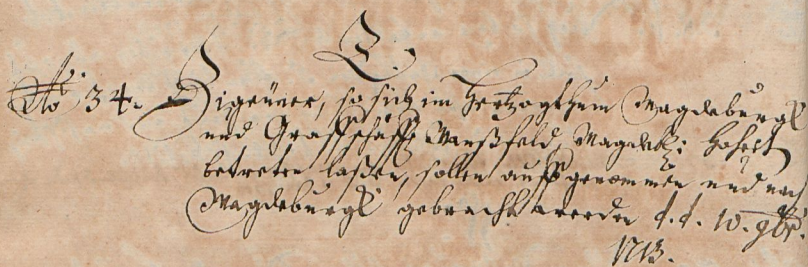 Z.
No 34. Zigeüner, so sich im Hertzogthum Magdeburgk
und Graffschafft Manßfeld, Magdeb: Hoheit
betreten laßen, sollen auffgenommen und nach
Magdeburgk gebracht werden d. d. 10. 9br.
1713.